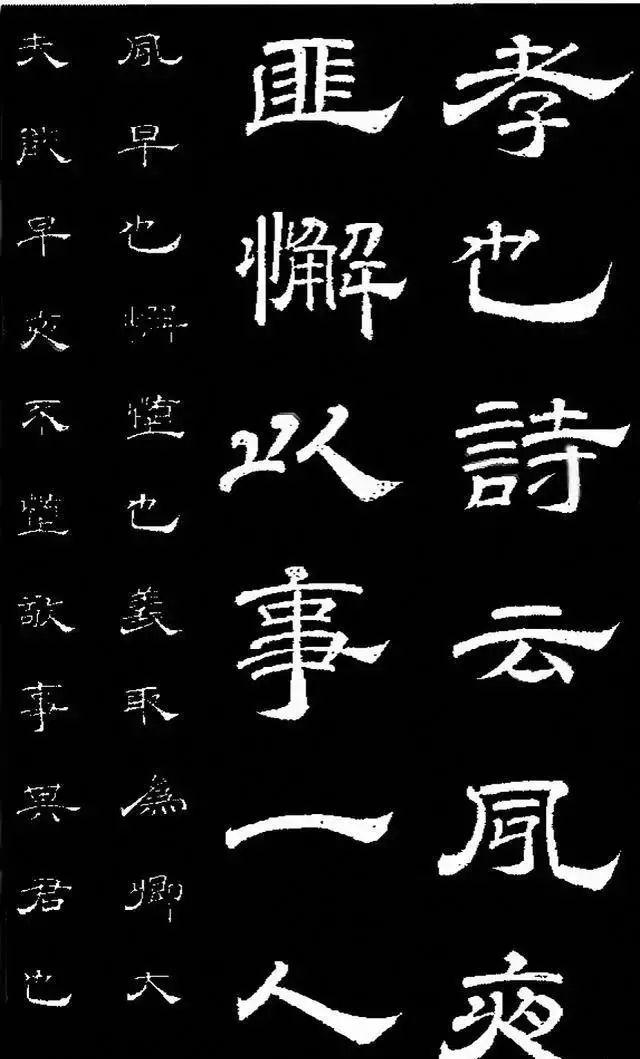 孝也詩云夙夜
匪懈以事一人
夙早也懈惰也義取為卿大
夫能早夜不惰敬事其君也